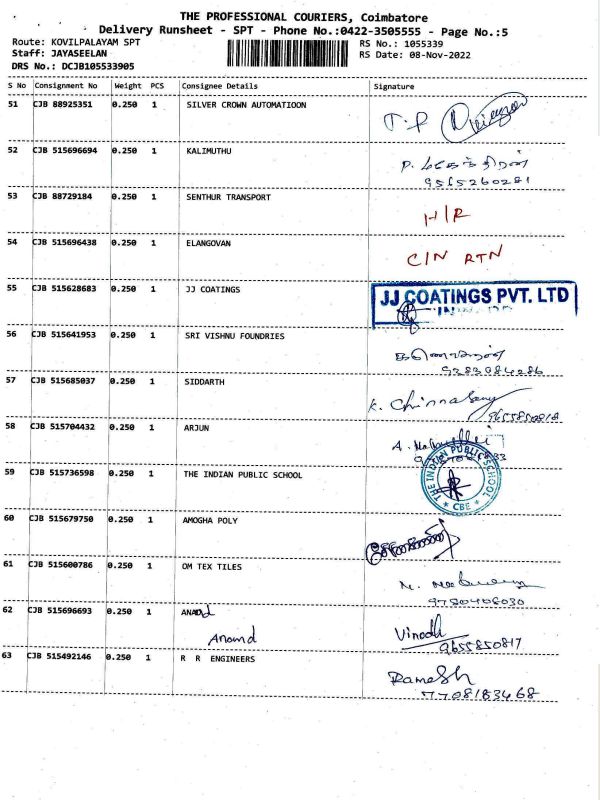 THE PROFESSIONAL COURIERS, Coimbatore
Delivery Runsheet - SPT - Phone No.:0422-3505555 - Page No.:5
Route: KOVILPALAYAM SPT RS No.: 1055339
Staff: JAYASEELAN RS Date: 08-Nov-2022
DRS No.: DCJB105533905
S No Consignment No Weight PCS Consignee Details Signature
51 CJB 88925351 0.250 1 SILVER CROWN AUTOMATIOON
52 CJB 515696694 0.250 1 KALIMUTHU P. மகேந்திரன்
9515260281
53 CJB 88729184 0.250 1 SENTHUR TRANSPORT H/R
54 CJB 515696438 0.250 1 ELANGOVAN C/N RTN
55 CJB 515628683 0.250 1 JJ COATINGS JJ COATINGS PVT. LTD
56 CJB 515641953 0.250 1 SRI VISHNU FOUNDRIES
9283084286
57 CJB 515685037 0.250 1 SIDDARTH K. Chinnasamy
9655850818
58 CJB 515704432 0.250 1 ARJUN A.
59 CJB 515736598 0.250 1 THE INDIAN PUBLIC SCHOOL THE INDIAN PUBLIC SCHOOL
CBE
60 CJB 515679750 0.250 1 AMOGHA POLY
61 CJB 515600786 0.250 1 OM TEX TILES N.
9750406030
62 CJB 515696693 0.250 1 ANAND
Anand Vinodh
9655850817
63 CJB 515492146 0.250 1 R R ENGINEERS Ramesh
7708183468